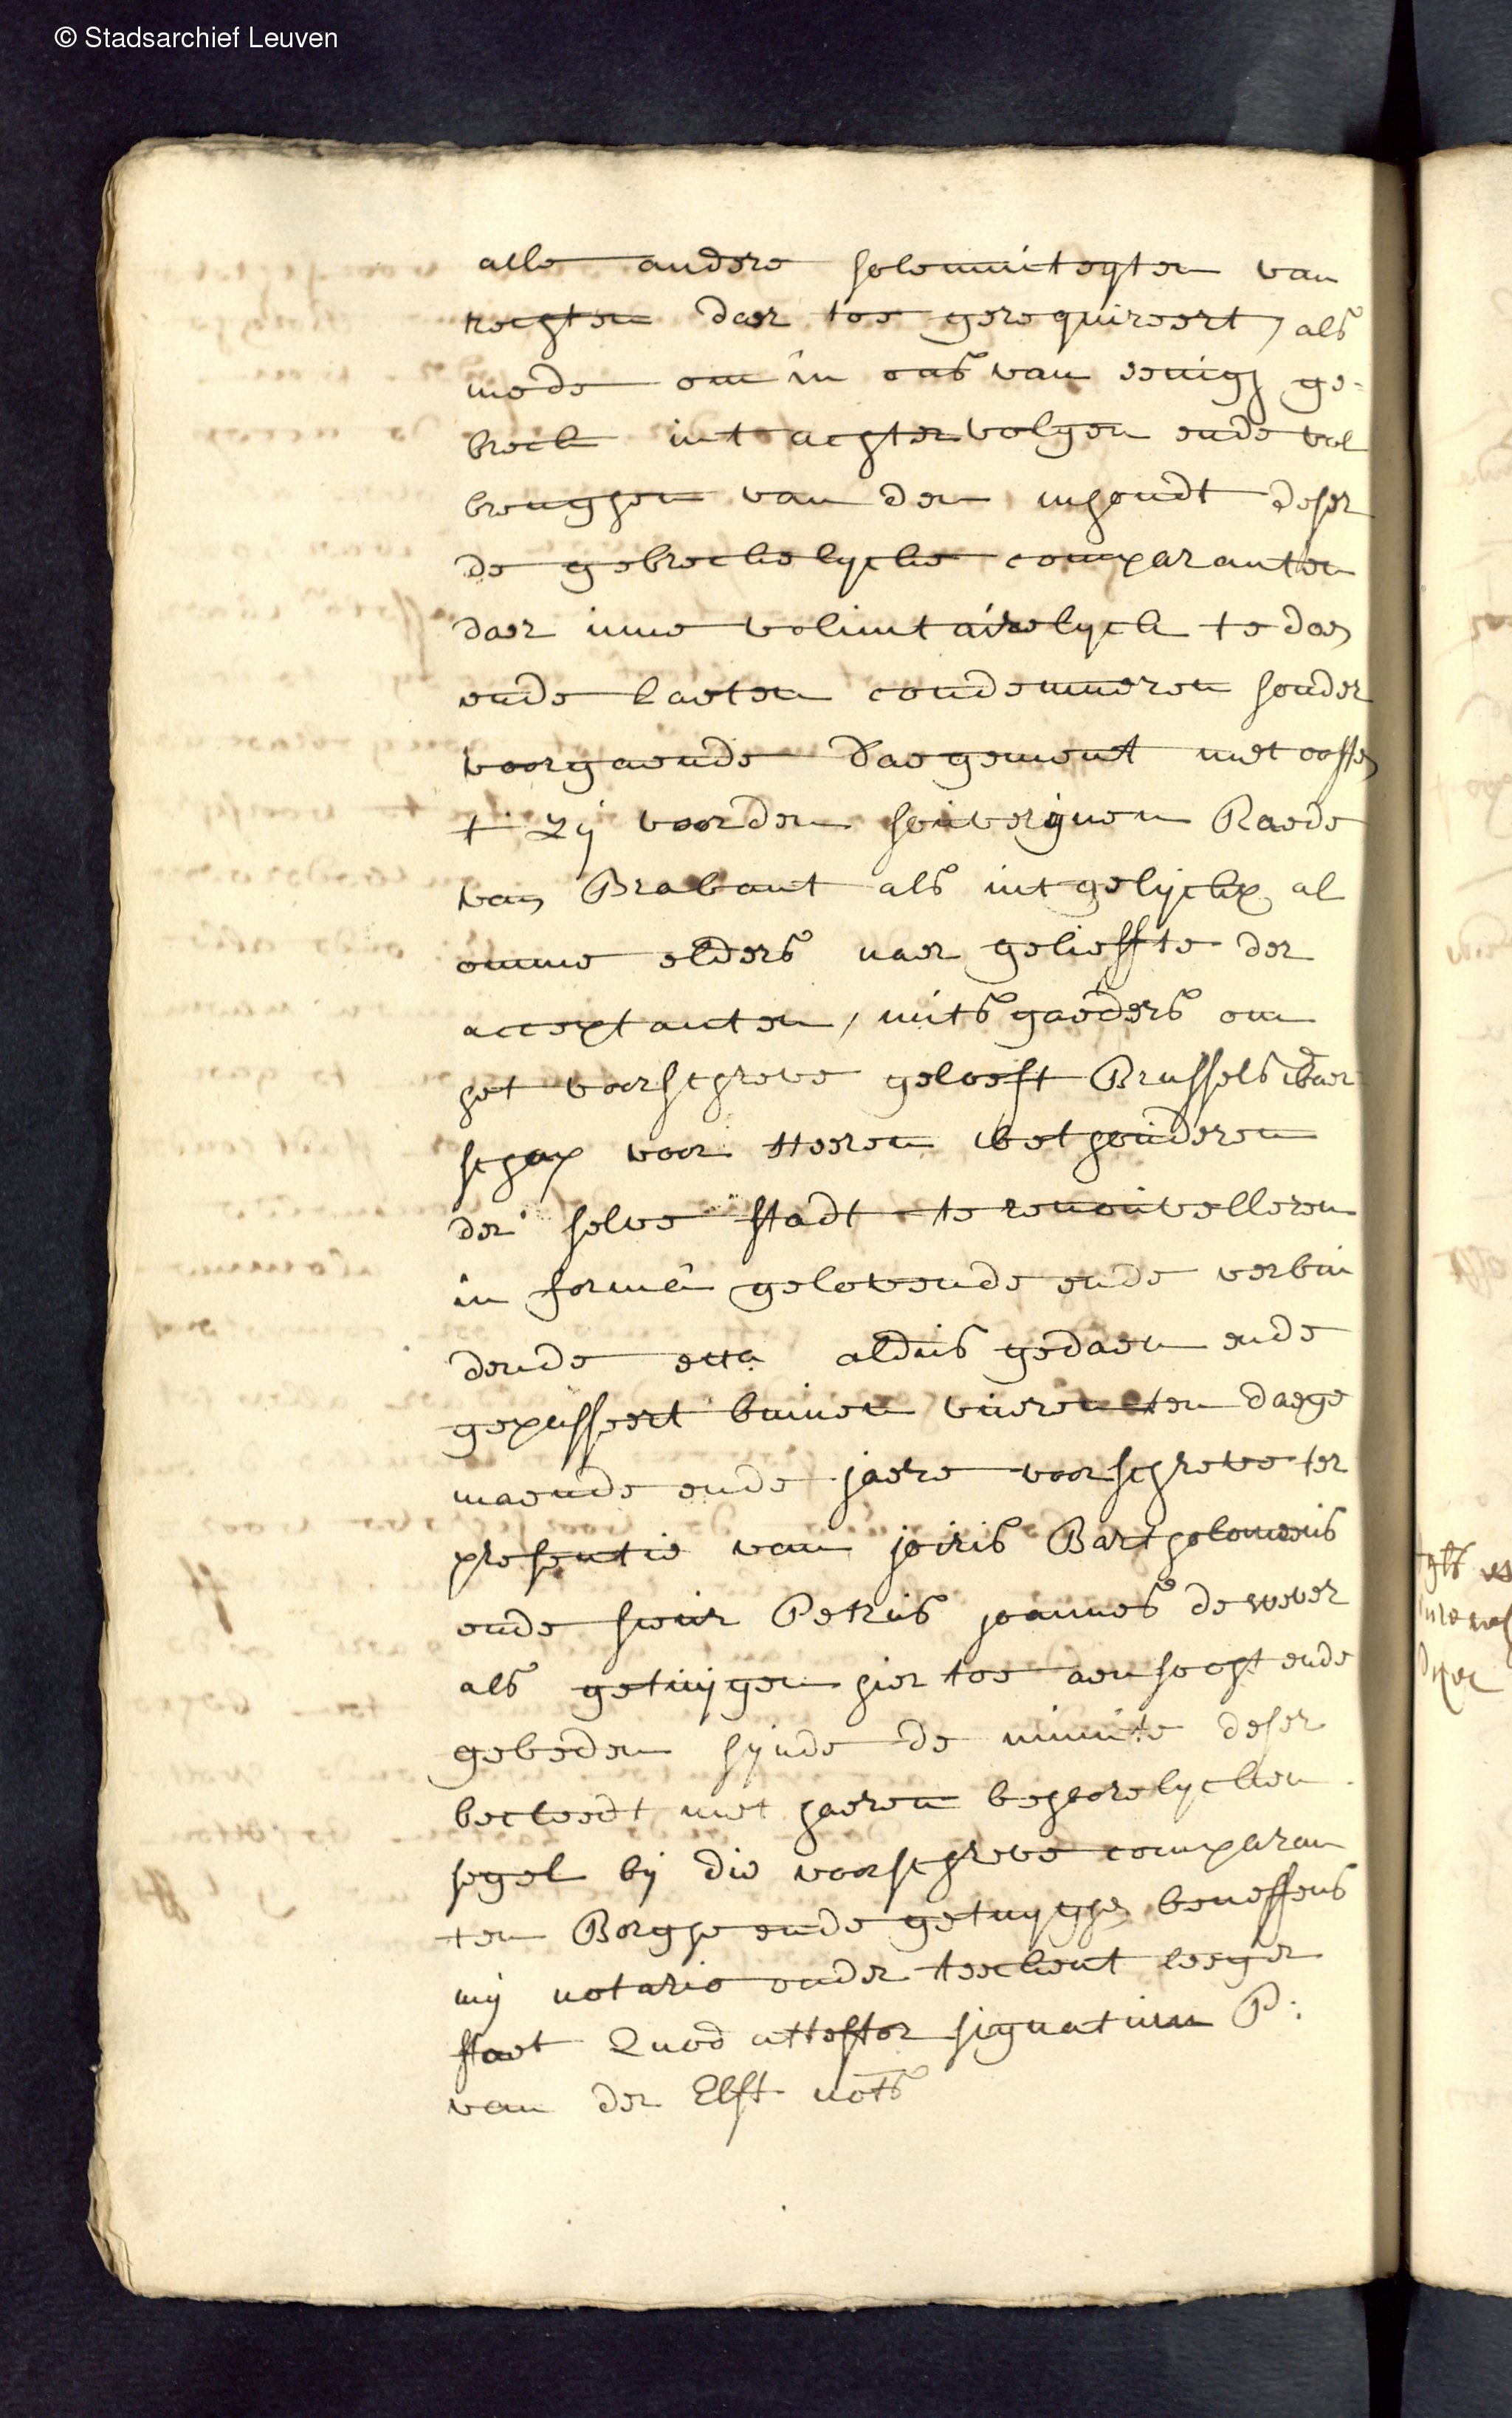 © Stadsarchief Leuven
alle andere solemniteyten van
rechten daer toe gerequireert, als
mede om in cas van eenigh ge-
breck int achtervolgen ende vol
brenghen van den inhoudt deser
de gebreckelycke comparanten
daer inne voluntairelyck te doen
ende laeten condemneren sonder
voorgaende daegement met costen
t'zij voor den souverijnen Raede
van Brabant als int gelyckx al
omme elders naer gelieffte der
acceptanten, mitsgaeders om
het voorschreve geloeft Brussels waer
schap voor Heeren wethouderen
der selve stadt te renouvelleren
in forma gelovende ende verbin
dende etta aldus gedaen ende
gepasseert binnen vueren ten daege
maende ende jaere voorschreve ter
presentie van joiris Bartholomeus
ende sieur Petrus joannes de wever
als getuijgen hier toe aensocht ende
gebeden sijnde de minute deser
becleedt met haeren behoorelycken
segel bij die voorschreve comparan
ten Borghe ende getuyghen beneffens
mij notario onderteeckent leeger
staet Quod attestor signatum P:
van der Elst nots